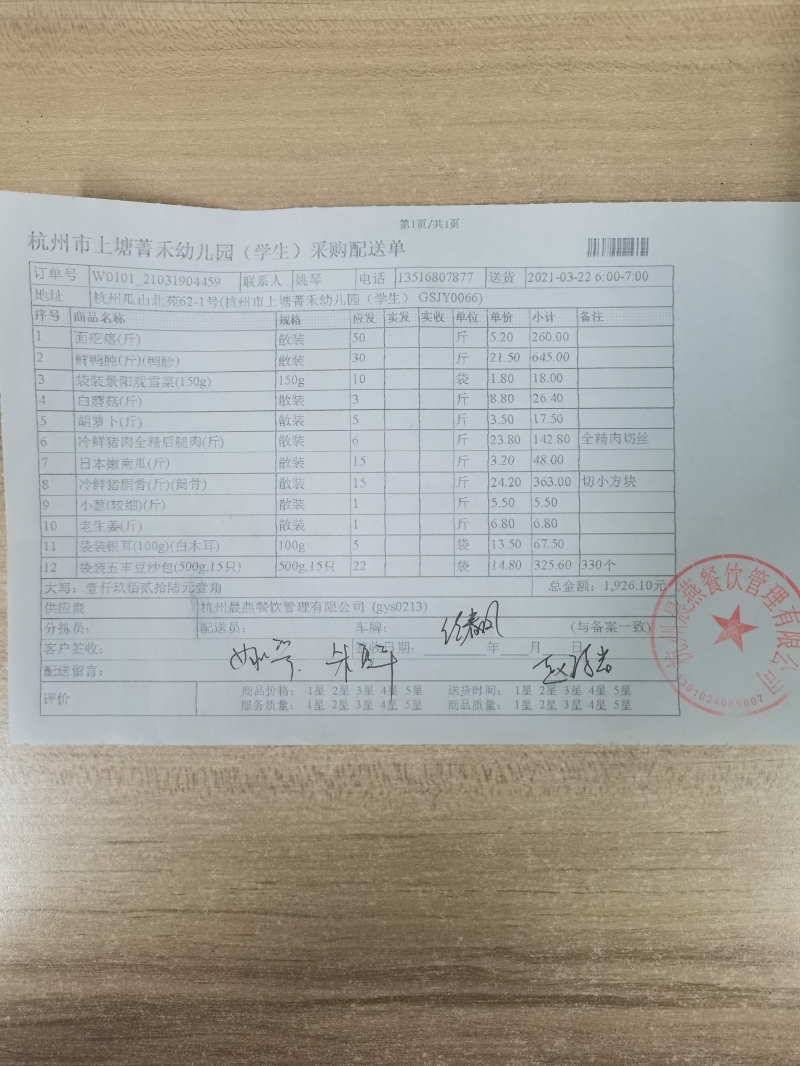 第1页/共1页
杭州市上塘菁禾幼儿园（学生）采购配送单
订单号 W0101_21031904459 联系人 姚琴 电话 13516807877 送货 2021-03-22 6:00-7:00
地址 杭州瓜山北苑62-1号(杭州市上塘菁禾幼儿园（学生） GSJY0066)
序号 商品名称 规格 应发 实发 实收 单位 单价 小计 备注
1 面疙瘩(斤) 散装 50 斤 5.20 260.00
2 鲜鸭肫(斤)(鸭胗) 散装 30 斤 21.50 645.00
3 袋装景阳观雪菜(150g) 150g 10 袋 1.80 18.00
4 白蘑菇(斤) 散装 3 斤 8.80 26.40
5 胡萝卜(斤) 散装 5 斤 3.50 17.50
6 冷鲜猪肉全精后腿肉(斤) 散装 6 斤 23.80 142.80 全精肉切丝
7 日本嫩南瓜(斤) 散装 15 斤 3.20 48.00
8 冷鲜猪胴骨(斤)(筒骨) 散装 15 斤 24.20 363.00 切小方块
9 小葱(较细)(斤) 散装 1 斤 5.50 5.50
10 老生姜(斤) 散装 1 斤 6.80 6.80
11 袋装银耳(100g)(白木耳) 100g 5 袋 13.50 67.50
12 袋装五丰豆沙包(500g,15只) 500g,15只 22 袋 14.80 325.60 330个
大写：壹仟玖佰贰拾陆元壹角 总金额：1,926.10元
供应商 杭州晨燕餐饮管理有限公司 (gys0213)
分拣员： 配送员： 车牌： (与备案一致)
客户签收： 签收日期： 年 月 日
配送留言：
评价 商品价格： 1星 2星 3星 4星 5星 送货时间： 1星 2星 3星 4星 5星
服务质量： 1星 2星 3星 4星 5星 商品质量： 1星 2星 3星 4星 5星
杭州晨燕餐饮管理有限公司